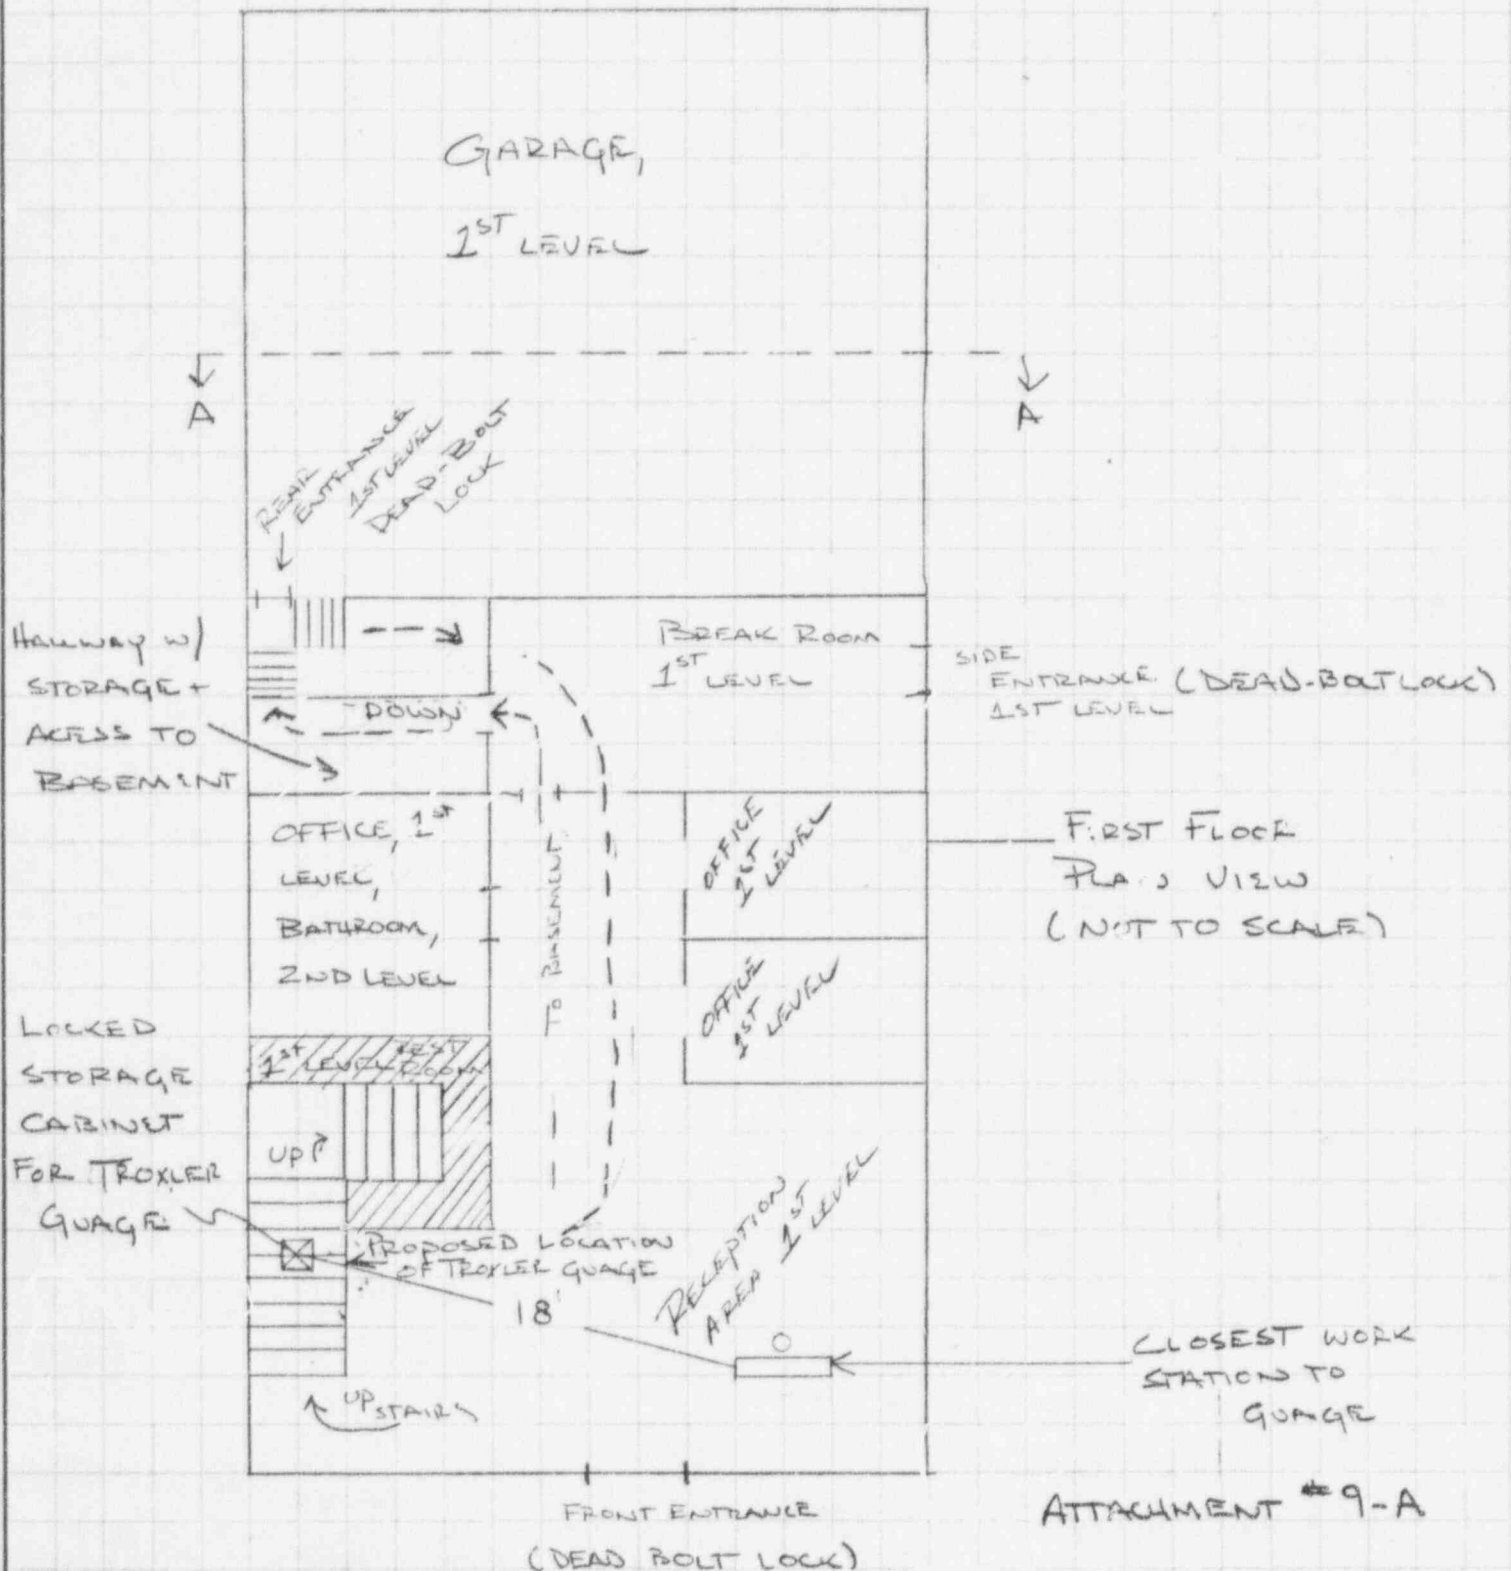 GARAGE,
1ST LEVEL
A
A
REAR
ENTRANCE
1ST LEVEL
DEAD-BOLT
LOCK
HALLWAY W/
STORAGE +
ACESS TO
BASEMENT
DOWN
BREAK ROOM
1ST
LEVEL
SIDE
ENTRANCE (DEAD-BOLT LOCK)
1ST LEVEL
OFFICE, 1ST
LEVEL,
BATHROOM,
2ND LEVEL
TO BASEMENT
OFFICE
1ST
LEVEL
OFFICE
1ST
LEVEL
FIRST FLOOR
VIEW
(NOT TO SCALE)
LOCKED
STORAGE
CABINET
FOR TROXLER
GUAGE
1ST LEVEL REST
ROOM
UP
PROPOSED LOCATION
OF TROXLER GUAGE
18'
RECEPTION
AREA 1ST
LEVEL
CLOSEST WORK
STATION TO
GUAGE
UPSTAIRS
FRONT ENTRANCE
(DEAD BOLT LOCK)
ATTACHMENT #9-A